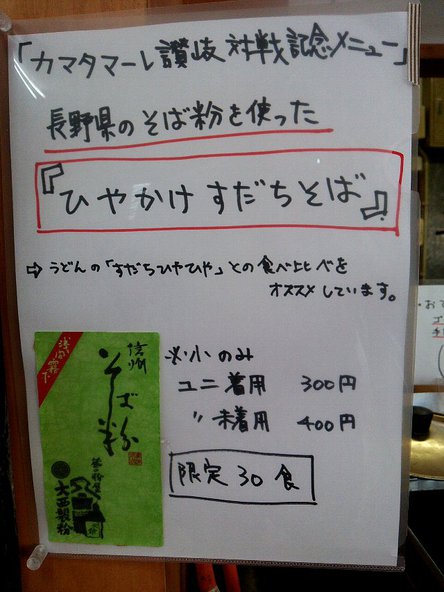 「カマタマーレ讃岐対戦記念メニュー」
長野県のそば粉を使った
『ひやかけすだちそば』
⇨ うどんの「すだちひやひや」との食べ比べを
オススメしています。
浅間霧下
信州
そば粉
※小のみ
ユニ着用 300円
〃 未着用 400円
限定30食